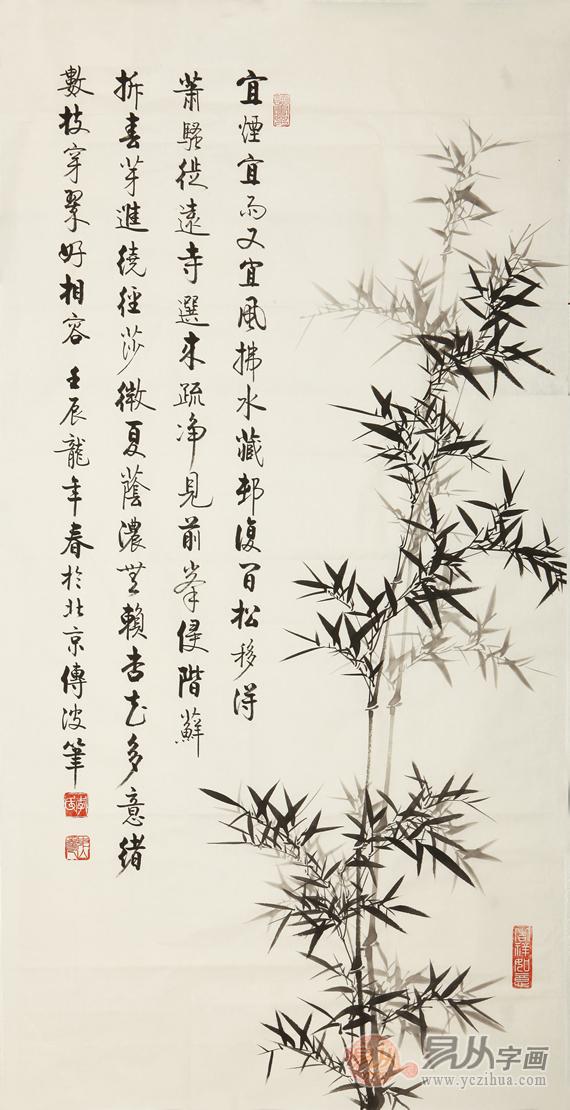 宜煙宜雨又宜風拂水藏邨復間松移得
蕭騷從遠寺選來疏净見前峯侵階蘚
拆春芽進繞徑莎微夏蔭濃無賴杏花多意緒
數枝穿翠好相容 壬辰龍年春於北京傳波筆
吉祥如意
易从字画
www.yczihua.com